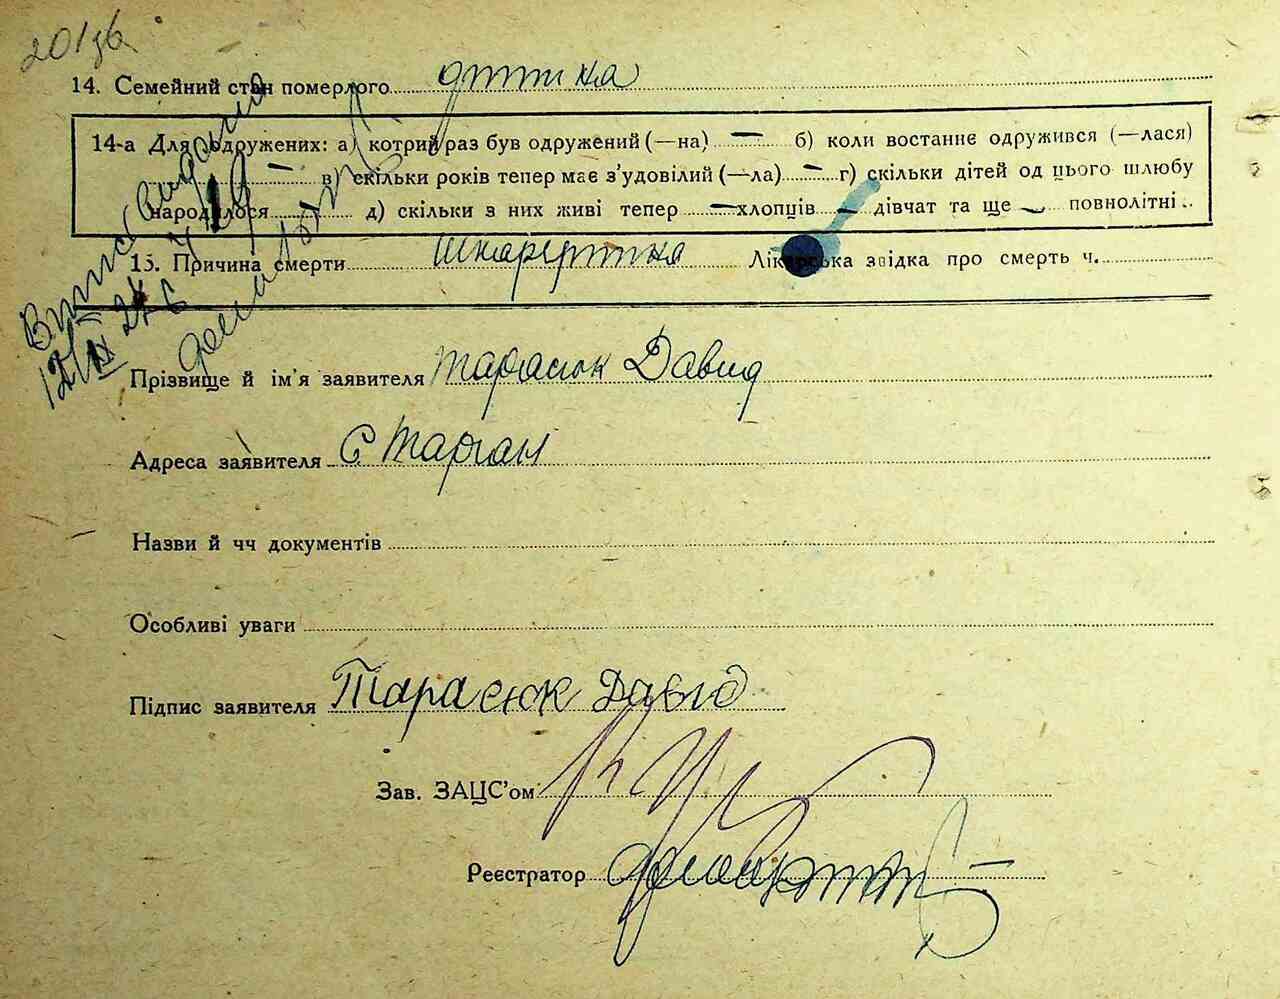 201зв
14. Семейний стан померлого дитина
14-а Для одружених: а) котрий раз був одружений (—на) — б) коли востаннє одружився (—лася)
— в) скільки років тепер має з'удовілий (—ла) — г) скільки дітей од цього шлюбу
народилося д) скільки з них живі тепер — хлопців — дівчат та ще — повнолітні..
15. Причина смерти шкарлятина Лікарська звідка про смерть ч.
Витяг видано
Прізвище й ім'я заявителя Тарасюк Давид
Адреса заявителя с Тарган
Назви й чч документів
Особливі уваги
Підпис заявителя Тарасюк Давид
Зав. ЗАЦС'ом
Реєстратор